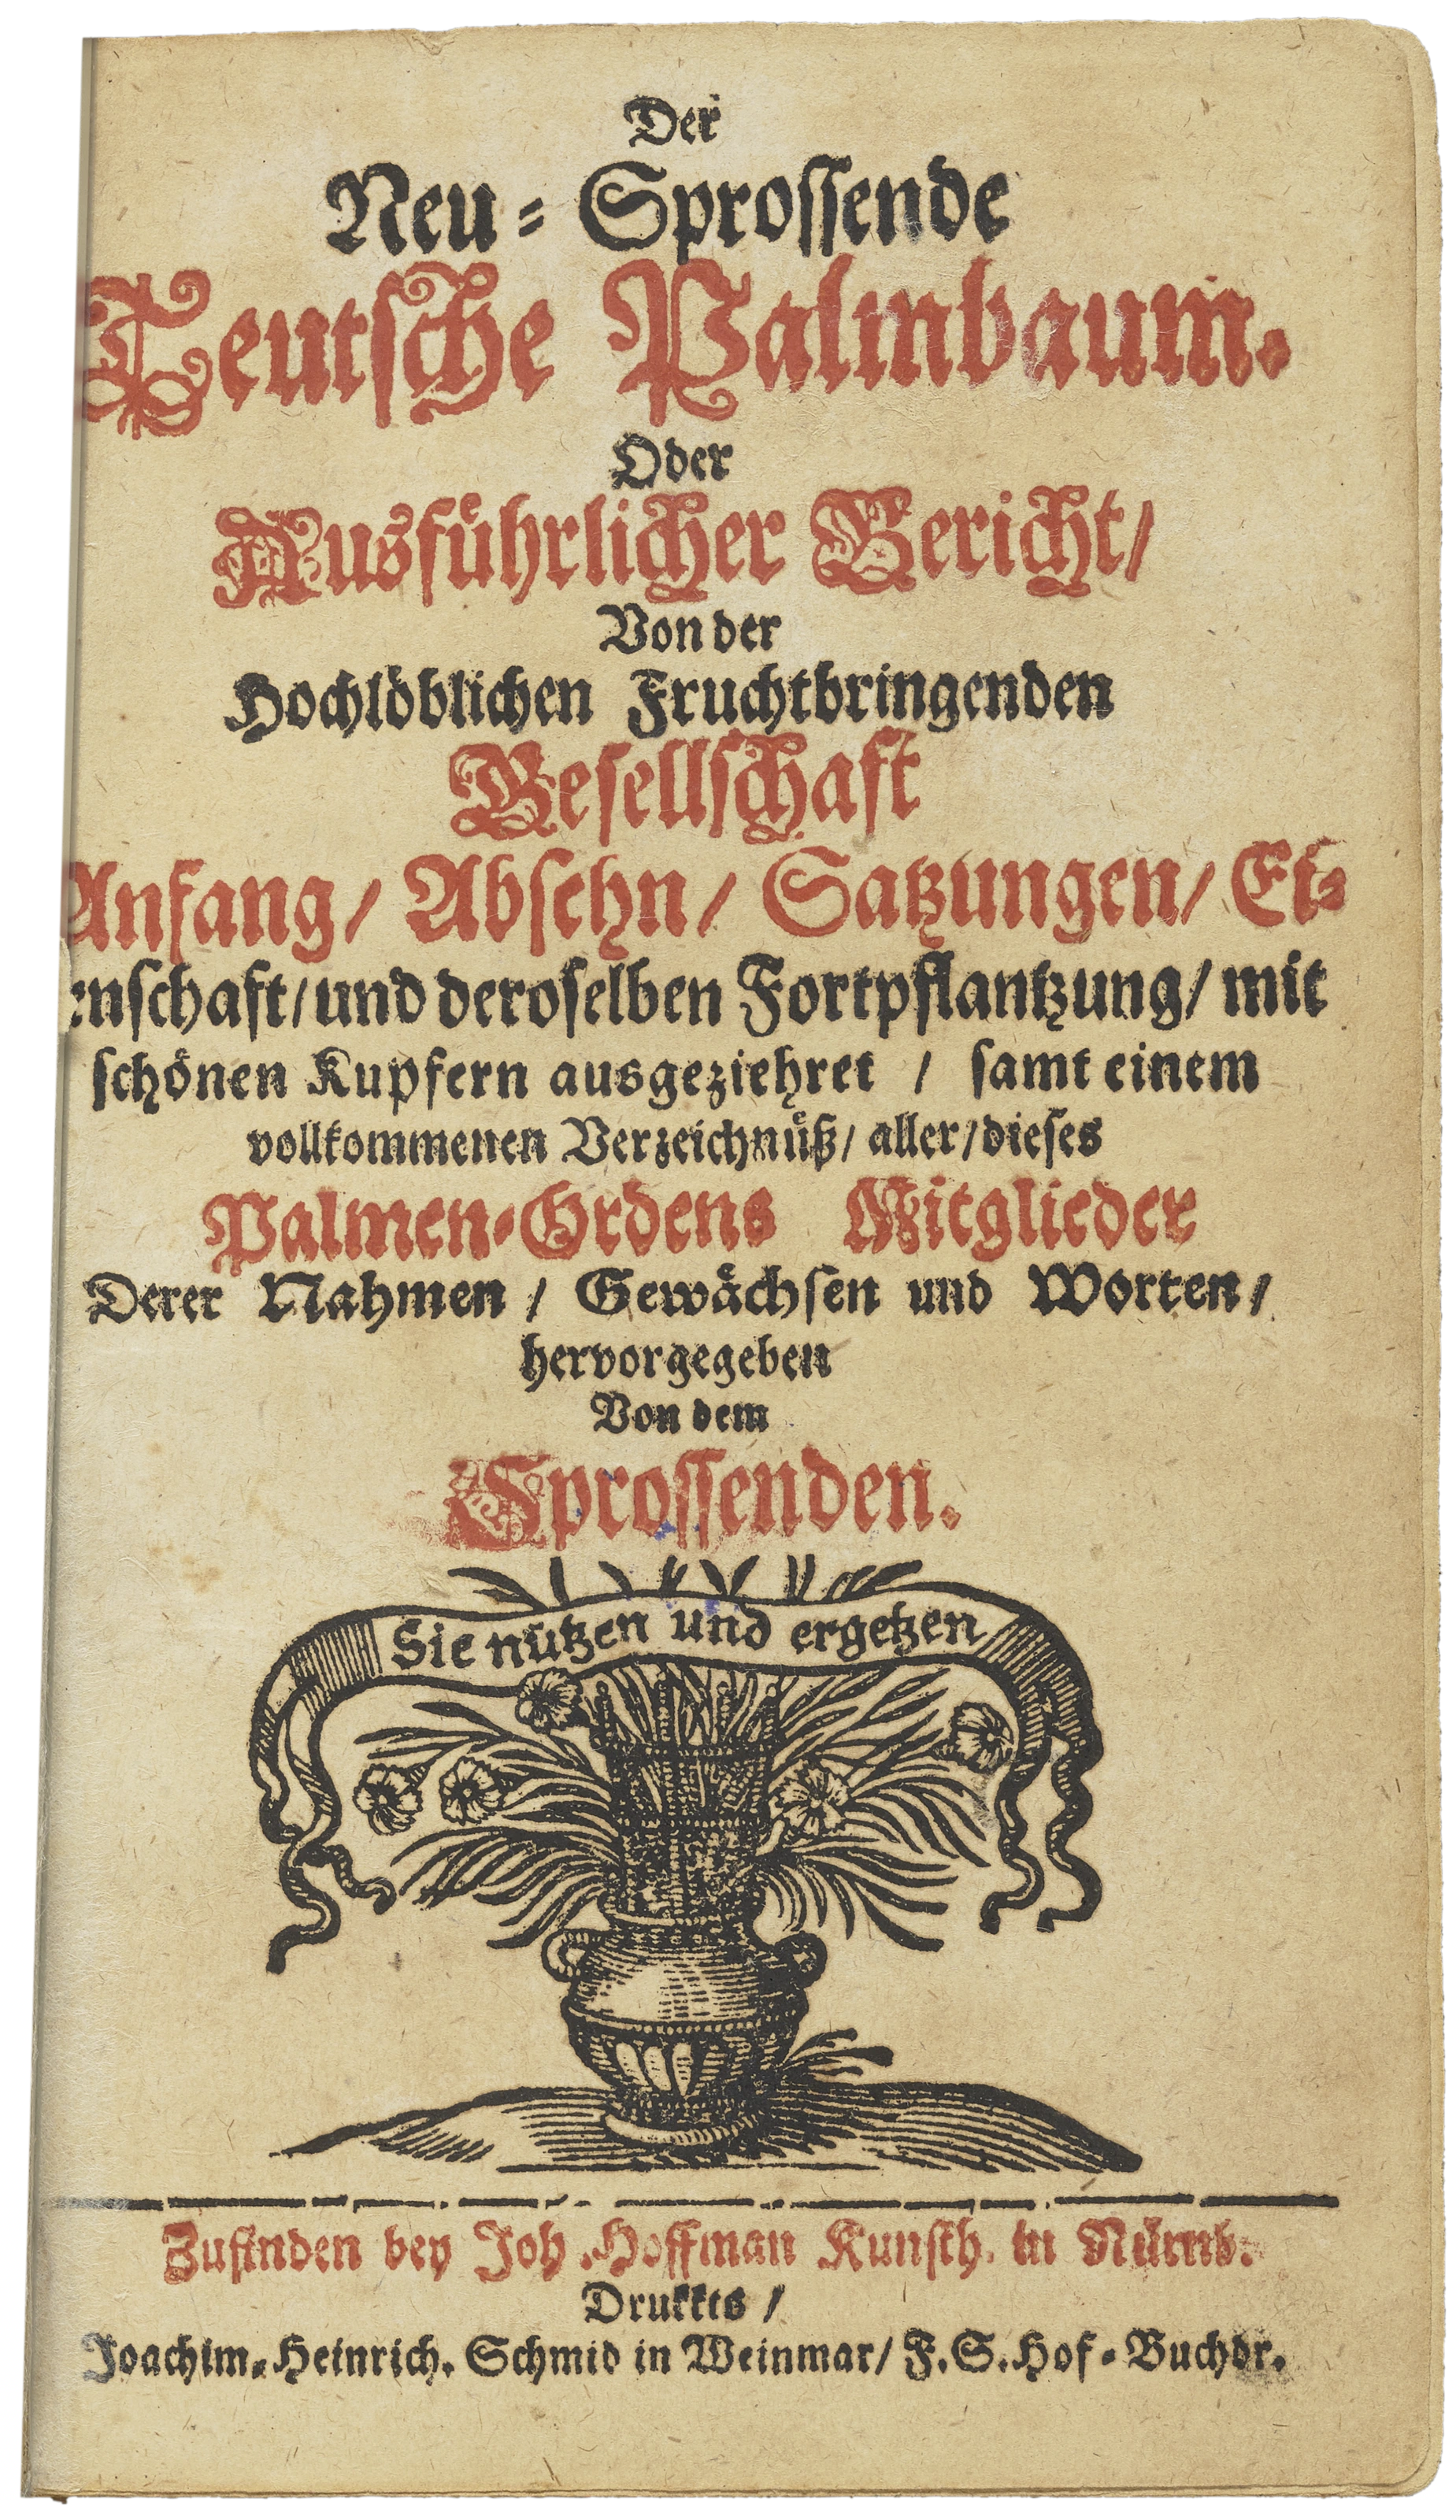 Der
Neu-Sprossende
Teutsche Palmbaum.
Oder
Ausfuͤhrlicher Bericht/
Von der
Hochloͤblichen Fruchtbringenden
Gesellschaft
Anfang/ Absehn/ Satzungen/ Ei-
enschaft/ und deroselben Fortpflantzung/ mit
schoͤnen Kupfern ausgeziehret / samt einem
vollkommenen Verzeichnuͤß/ aller/ dieses
Palmen-Ordens Mitglieder
Derer Nahmen / Gewaͤchsen und Worten /
hervorgegeben
Von dem
Sprossenden.
Sie nützen und ergetzen
Zufinden bey Joh. Hoffman Kunsth. in Nürnb.
Drukkts /
Joachim-Heinrich. Schmid in Weinmar/ F. S. Hof-Buchdr.